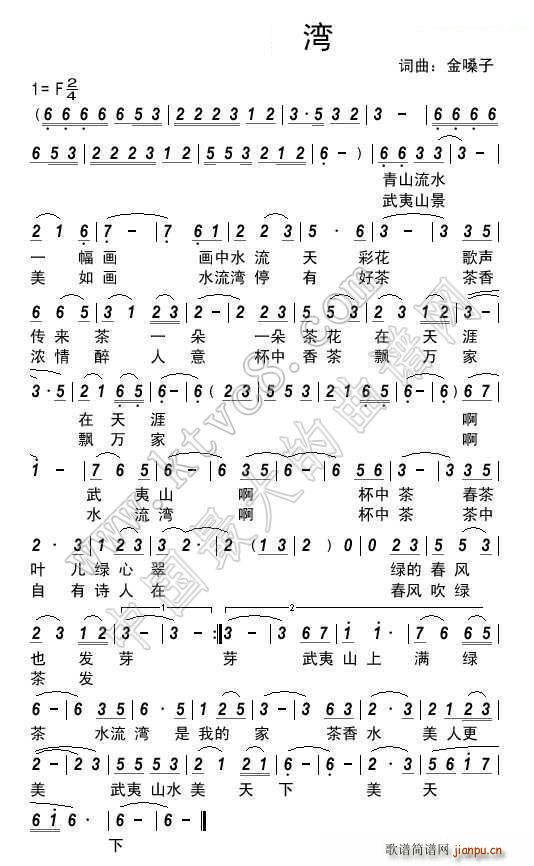 湾
词曲：金嗓子
1= F 2/4
( 6 6 6 6 6 5 3 | 2 2 2 3 1 2 | 3 · 5 3 2 | 3 - | 6 6 6 6
6 5 3 | 2 2 2 3 1 2 | 5 5 3 2 1 2 | 6 - ) | 6 6 3 3 | 3 - |
青山流水
武夷山景
2 1 6 | 7 - | 7 6 1 | 2 · 3 | 2 5 · 6 | 3 - | 3 3 5 |
一 幅画 画中水 流 天 彩花 歌声
美 如画 水流湾 停 有 好茶 茶香
6 6 5 | 3 1 | 2 3 5 | 6 - | 6 1 2 | 2 3 | 2 1 6 |
传来茶 一 朵 一朵 茶 花 在 天 涯
浓情醉 人 意 杯中 香 茶 飘 万 家
3 · 5 | 2 1 6 5 | 6 - | 6 ( 2 3 | 5 5 3 | 2 1 6 5 | 6 - ) | 6 7 |
在 天 涯 啊
飘 万 家 啊
1 - | 7 6 5 | 6 - | 6 3 5 | 6 · 7 | 6 5 3 | 3 - | 3 5 |
武 夷 山 啊 杯中 茶 春茶
水 流 湾 啊 杯中 茶 茶中
2 · 3 | 1 2 3 | 3 2 · | 2 - | 2 ( 1 3 | 2 ) 0 | 0 2 3 | 5 5 3 |
叶 儿绿心 翠 绿的 春 风
自 有诗人 在 春风 吹 绿
2 3 1 2 | 3 - | 3 - :|| 3 - | 3 6 7 | 1 1 · | 7 6 6 5 |
1 2
也 发 芽 芽 武夷 山 上 满 绿
茶 发
6 - | 6 3 5 | 6 · 5 | 1 2 5 | 3 - | 6 6 3 | 2 · 3 | 1 2 3 |
茶 水流 湾 是 我的 家 茶香 水 美 人更
2 - | 2 3 | 5 5 3 | 2 1 | 2 5 | 6 - | 6 - | 2 · 3 |
美 武夷 山水 美 天 下 美 天
6 1 · | 6 - | 6 0 ||
下
www.ktvc8.com
中国最大的曲谱网
歌谱简谱网
www.jianpu.cn